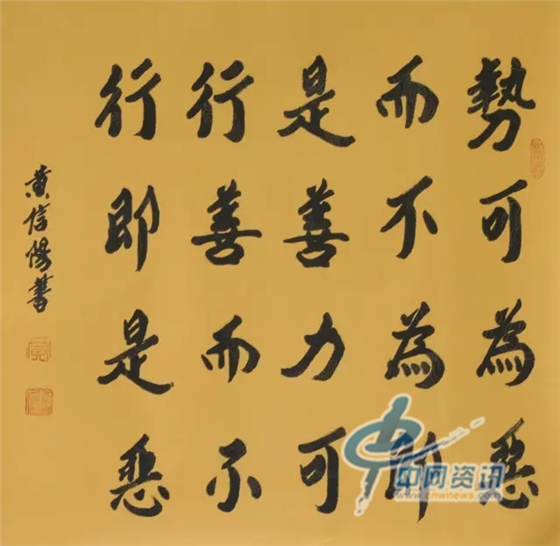 勢可為惡
而不為即
是善力可
行善而不
行即是惡
黄信陽書
中网资讯
www.cnwnews.com